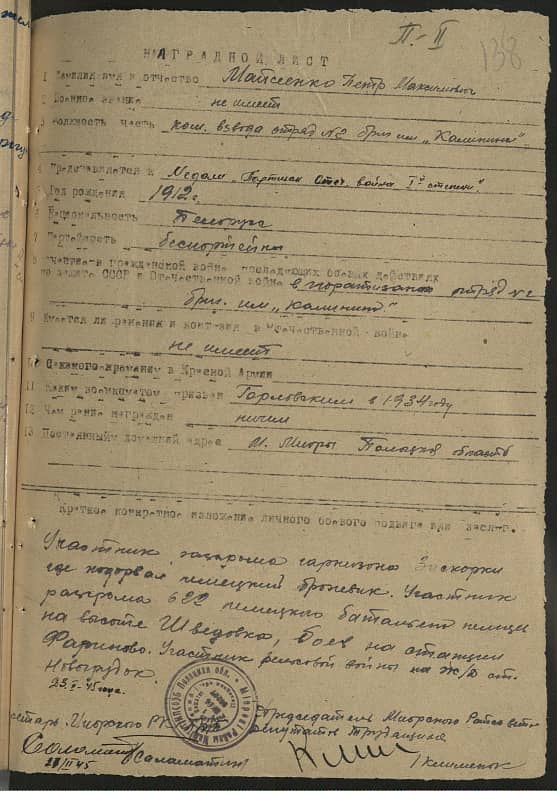 П-II
138
НАГРАДНОЙ ЛИСТ
1 Фамилия имя и отчество Майсеенко Петр Максимович
2 Военное звание не имеет
3 Должность часть ком. взвода отряд №2 бриг им „Калинина".
4 Представляется к Медали „Партизан Отеч. война I степени".
5 Год рождения 1912 г.
6 Национальность Белорус
7 Партейность беспартейный
8 Участие в гражданской войне последующих боевых действиях
по защите СССР и Отечественной войне в партизанс отряд №2
бриг. им „Калинина".
9 Имеется ли ранения и контузия в Отечественной войне
не имеет
10 в Красной Армии
11 Каким военкоматом призван Горловским в 1934 году
12 Чем ранне награжден ничем
13 Постоянный домашний адрес М. Миоры Полоцкой область
Краткое конкретное изложение личного боевого подвига или заслуг.
Участник разгрома гарнизона Заскорки
где подорвал немецкий броневик. Участник
разгрома 622 немецкого батальона
на высоте Шведовка, боев на станции
Фариново. Участник рельсовой войны на ж/д ст.
Новогрудок.
45 года.
Миорского РК
Председатель Миорского Райсовета
депутатов Трудящихся
/Саламатин/
/Клименок
II 45